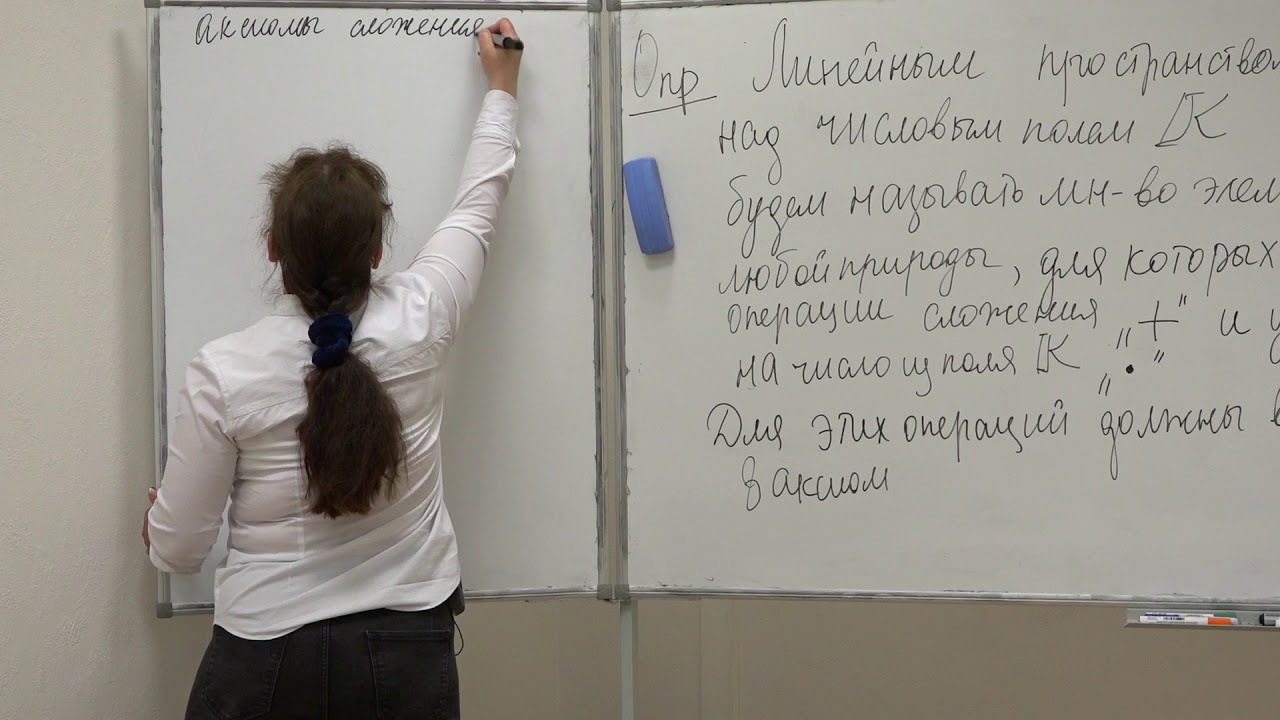 аксиомы сложения
Опр Линейным пространством
над числовым полем K
будем называть мн-во элем
любой природы, для которых
операции сложения „+“ и у
на число из поля K „·”
Для этих операций должны в
8 аксиом